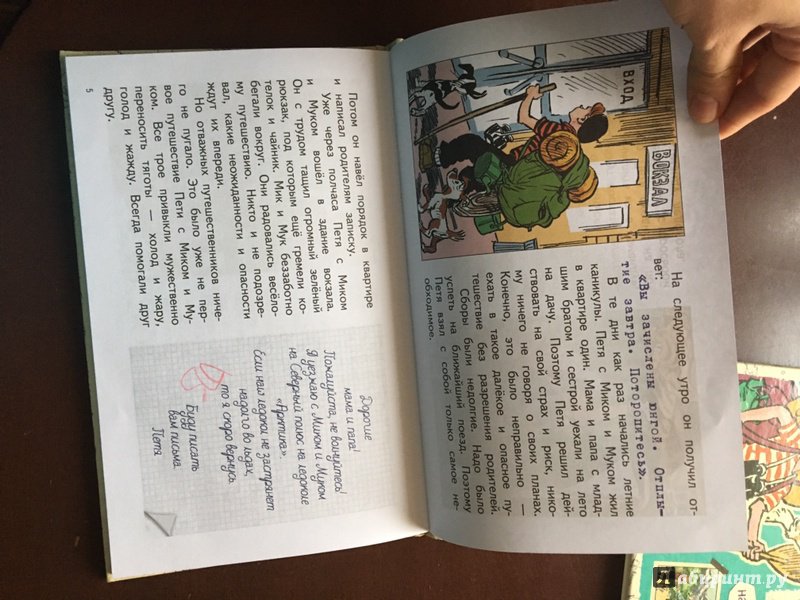 ВХОД
ВОКЗАЛ
На следующее утро он получил от-
вет:
«Вы зачислены юнгой. Отплы-
тие завтра. Поторопитесь».
В те дни как раз начались летние
каникулы. Петя с Миком и Муком жил
в квартире один. Мама и папа с млад-
шим братом и сестрой уехали на лето
на дачу. Поэтому Петя решил дей-
ствовать на свой страх и риск, нико-
му ничего не говоря о своих планах.
Конечно, это было неправильно —
ехать в такое далёкое и опасное пу-
тешествие без разрешения родителей.
Сборы были недолгие. Надо было
успеть на ближайший поезд. Поэтому
Петя взял с собой только самое не-
обходимое.
Потом он навёл порядок в квартире
и написал родителям записку.
Уже через полчаса Петя с Миком
и Муком вошёл в здание вокзала.
Он с трудом тащил огромный зелёный
рюкзак, под которым ещё гремели ко-
телок и чайник. Мик и Мук беззаботно
бегали вокруг. Они радовались весёло-
му путешествию. Никто и не подозре-
вал, какие неожиданности и опасности
ждут их впереди.
Но отважных путешественников ниче-
го не пугало. Это было уже не пер-
вое путешествие Пети с Миком и Му-
ком. Все трое привыкли мужественно
переносить тяготы — холод и жару,
голод и жажду. Всегда помогали друг
другу.
Дорогие
мама и папа!
Пожалуйста, не волнуйтесь!
Я уезжаю с Миком и Муком
на Северный полюс на ледоколе
«Арктика».
Если наш ледокол не застрянет
надолго во льдах,
то я скоро вернусь.
Буду писать
вам письма.
Петя
5
на
Лабиринт.ру